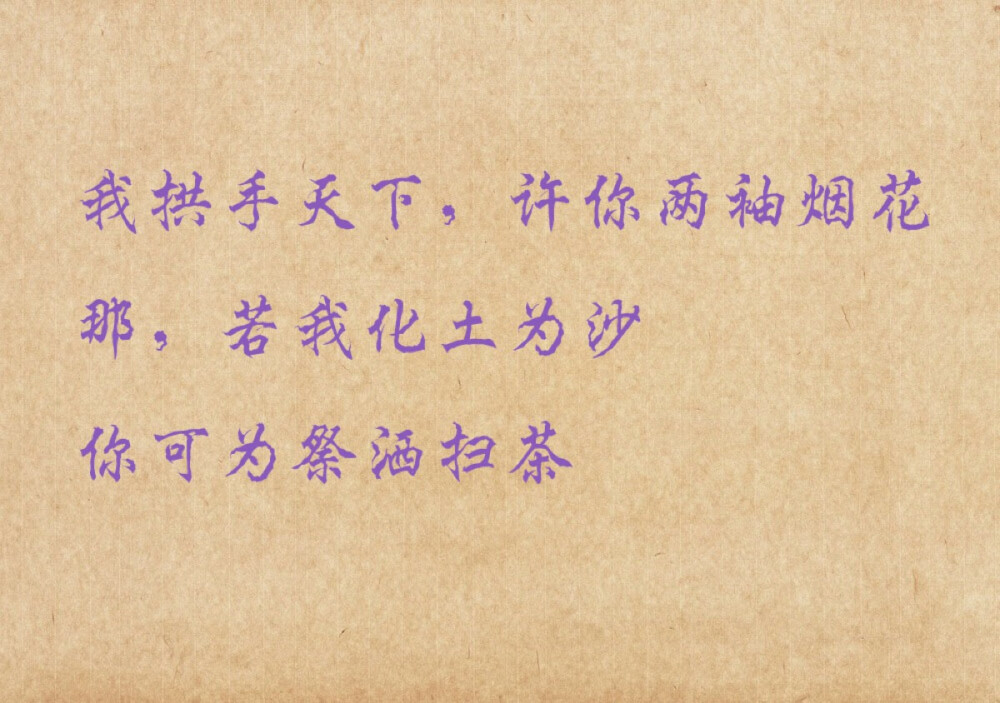 我拱手天下，许你两袖烟花
那，若我化土为沙
你可为祭洒扫茶